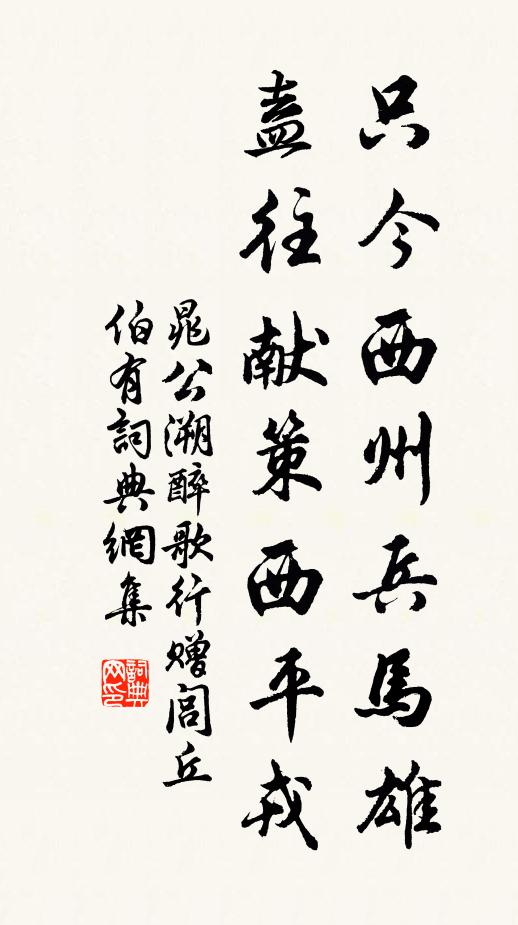 只今西州兵馬雄
盍往献策西平戎
晁公溯醉歌行贈閭丘
伯有詞典網集
詞典网印